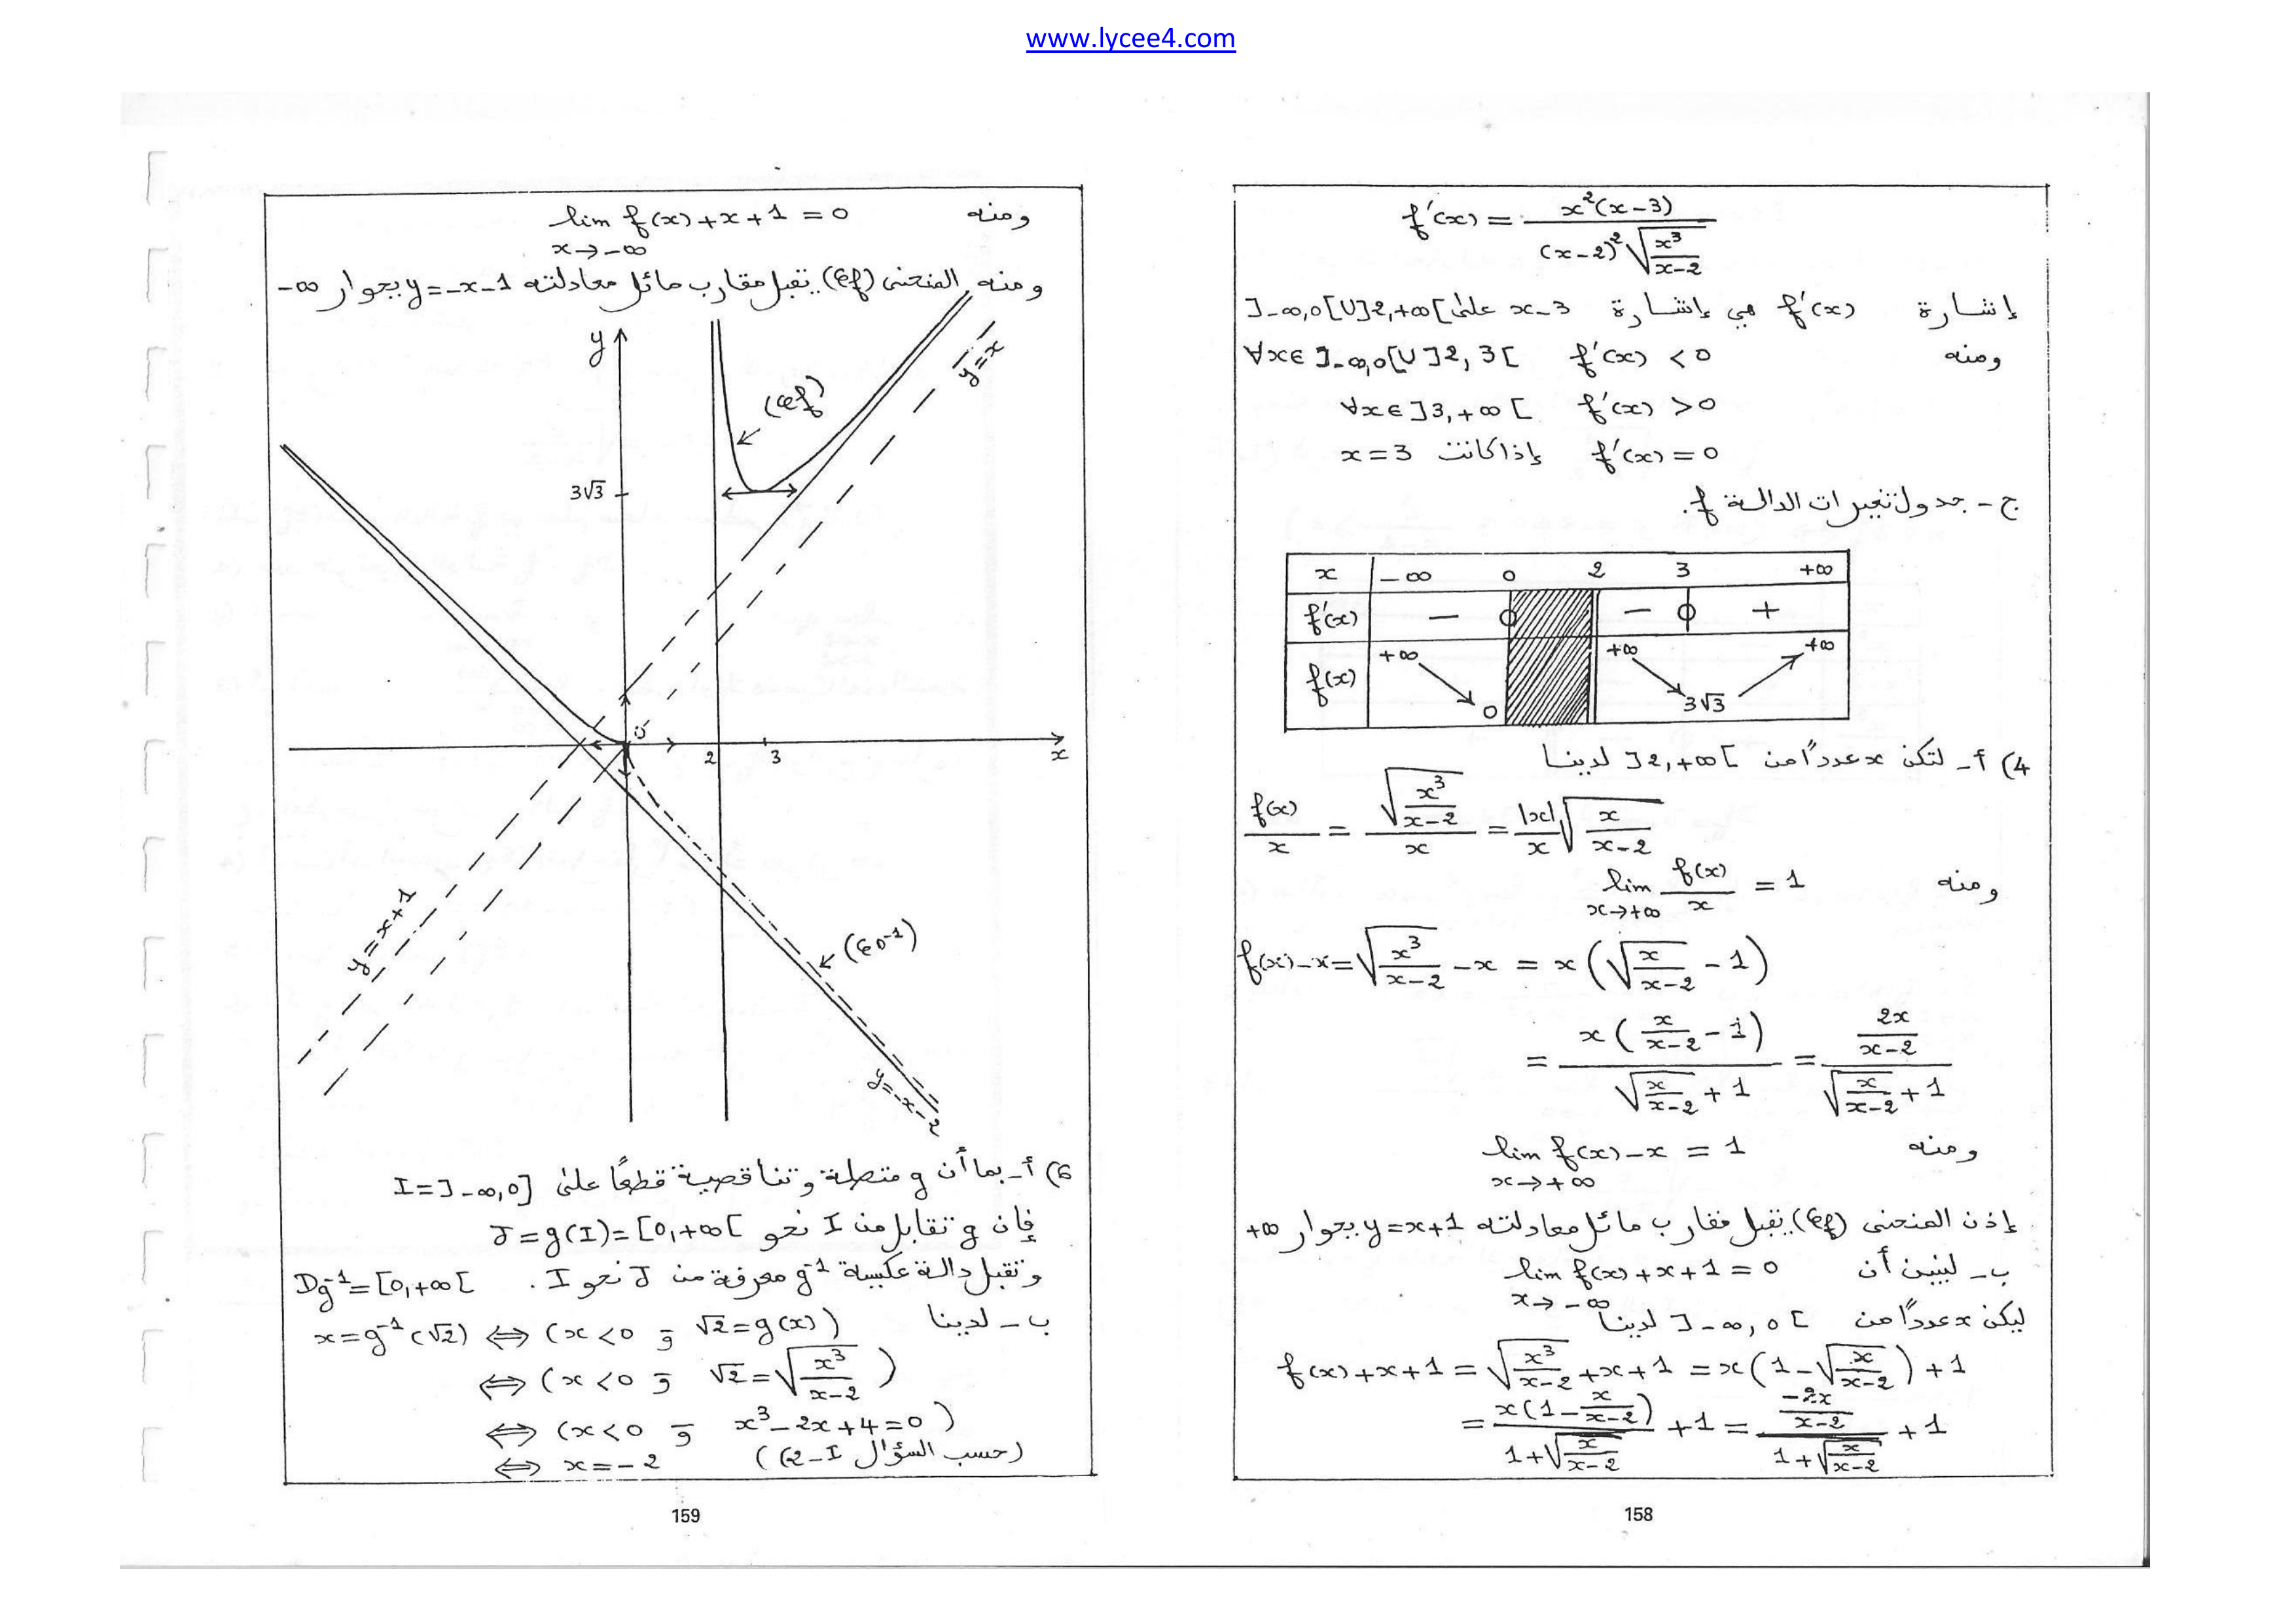 www.lycee4.com
f'(x) = \frac{x^2(x-3)}{(x-2)^2\sqrt{\frac{x^3}{x-2}}}
إشارة f'(x) هي إشارة x-3 على ]-∞,0[∪]2,+∞[
ومنه ∀x∈]-∞,0[∪]2,3[ f'(x) < 0
∀x∈]3,+∞[ f'(x) > 0
f'(x) = 0 إذا كانت x = 3
ج - جدول تغيرات الدالة f.
x -∞ 0 2 3 +∞
f'(x) - 0 - 0 +
f(x) +∞ 0 +∞ 3√3 +∞
4) أ - لتكن x عدداً من ]2,+∞[ لدينا
\frac{f(x)}{x} = \frac{\sqrt{\frac{x^3}{x-2}}}{x} = \frac{|x|}{x}\sqrt{\frac{x}{x-2}}
ومنه \lim_{x→+∞} \frac{f(x)}{x} = 1
f(x)-x = \sqrt{\frac{x^3}{x-2}} - x = x(\sqrt{\frac{x}{x-2}} - 1)
= \frac{x(\frac{x}{x-2} - 1)}{\sqrt{\frac{x}{x-2}} + 1} = \frac{\frac{2x}{x-2}}{\sqrt{\frac{x}{x-2}} + 1}
ومنه \lim_{x→+∞} f(x)-x = 1
إذن المنحنى (𝒞f) يقبل مقارب مائل معادلته y=x+1 بجوار +∞
ب - لنبين أن \lim_{x→-∞} f(x)+x+1 = 0
ليكن x عدداً من ]-∞,0[ لدينا
f(x)+x+1 = \sqrt{\frac{x^3}{x-2}}+x+1 = x(1-\sqrt{\frac{x}{x-2}})+1
= \frac{x(1-\frac{x}{x-2})}{1+\sqrt{\frac{x}{x-2}}} +1 = \frac{\frac{-2x}{x-2}}{1+\sqrt{\frac{x}{x-2}}} +1
158
ومنه \lim_{x→-∞} f(x)+x+1 = 0
ومنه المنحنى (𝒞f) يقبل مقارب مائل معادلته y=-x-1 بجوار -∞
y
y=x
(𝒞f)
3√3
2 3 x
y=x+1
y=-x-2
6) أ - بما أن g متصلة وتناقصية قطعاً على I=]-∞,0]
فإن g تقابل من I نحو J=g(I)=[0,+∞[
وتقبل دالة عكسية g⁻¹ معرفة من J نحو I. Dg⁻¹=[0,+∞[
ب - لدينا x=g⁻¹(√2) ⟺ (x<0 و √2=g(x))
⟺ (x<0 و √2=\sqrt{\frac{x^3}{x-2}})
⟺ (x<0 و x³-2x+4=0)
⟺ x=-2 (حسب السؤال I-2))
159